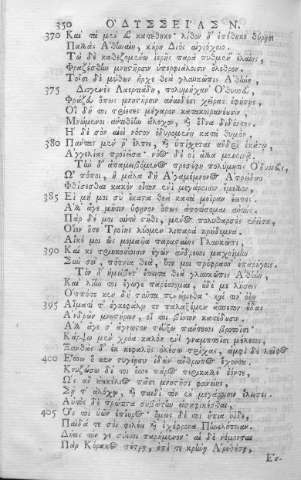 350 ΟΔΥΣΣΕΙΑΣ Ν.
370 Καὶ τὰ μὲν εὖ κατέθηκε· λίθον δ' ἐπέθηκε θύρῃσι
Παλλὰς Ἀθηναίη, κούρη Διὸς αἰγιόχοιο.
Τὼ δὲ καθεζομένω ἱερῆς παρὰ πυθμέν' ἐλαίης,
Φραζέσθην μνηστῆρσιν ὑπερφιάλοισιν ὄλεθρον.
Τοῖσι δὲ μύθων ἦρχε θεὰ γλαυκῶπις Ἀθήνη,
375 Διογενὲς Λαερτιάδη, πολυμήχαν' Ὀδυσσεῦ,
Φράζευ ὅπως μνηστῆρσιν ἀναιδέσι χεῖρας ἐφήσεις,
Οἳ δή τοι τρίετες μέγαρον κατακοιρανέουσι,
Μνώμενοι ἀντιθέην ἄλοχον, καὶ ἕδνα διδόντες.
Ἡ δὲ σὸν αἰεὶ νόστον ὀδυρομένη κατὰ θυμὸν,
380 Πάντας μέν ῥ' ἔλπει, καὶ ὑπίσχεται ἀνδρὶ ἑκάστῳ,
Ἀγγελίας προϊεῖσα· νόος δέ οἱ ἄλλα μενοινᾷ.
Τὴν δ' ἀπαμειβόμενος προσέφη πολύμητις Ὀδυσσεὺς,
Ὢ πόποι, ἦ μάλα δὴ Ἀγαμέμνονος Ἀτρείδαο
Φθίσεσθαι κακὸν οἶτον ἐνὶ μεγάροισιν ἔμελλον,
385 Εἰ μή μοι σὺ ἕκαστα θεὰ κατὰ μοῖραν ἔειπες.
Ἀλλ' ἄγε μῆτιν ὕφηνον ὅπως ἀποτίσομαι αὐτούς·
Πὰρ δέ μοι αὐτὴ στῆθι, μένος πολυθαρσὲς ἐνεῖσα,
Οἷον ὅτε Τροίης λύομεν λιπαρὰ κρήδεμνα.
Αἴκε μοι ὣς μεμαυῖα παρασταίης Γλαυκῶπι,
390 Καί κε τριηκοσίοισιν ἐγὼν ἄνδρεσσι μαχοίμην
Σὺν σοὶ, πότνα θεὰ, ὅτε μοι πρόφρασσ' ἐπαρήγοις.
Τὸν δ' ἠμείβετ' ἔπειτα θεὰ γλαυκῶπις Ἀθήνη,
Καὶ λίην τοι ἔγωγε παρέσσομαι, οὐδέ με λήσεις
Ὁππότε κεν δὴ ταῦτα πενώμεθα· καί τιν' ὀΐω
395 Αἵματί τ' ἐγκεφάλῳ τε παλαξέμεν ἄσπετον οὖδας
Ἀνδρῶν μνηστήρων, οἵ τοι βίοτον κατέδουσι.
Ἀλλ' ἄγε σ' ἄγνωστον τεύξω πάντεσσι βροτοῖσι·
Κάρψω μὲν χρόα καλὸν ἐνὶ γναμπτοῖσι μέλεσσι,
Ξανθὰς δ' ἐκ κεφαλῆς ὀλέσω τρίχας, ἀμφὶ δὲ λαῖφος
400 Ἕσσω ὅ κεν στυγέῃσιν ἰδὼν ἄνθρωπον ἔχοντα.
Κνυζώσω δέ τοι ὄσσε πάρος περικαλλέ' ἐόντε,
Ὡς ἂν ἀεικέλιος πᾶσι μνηστῆρσι φανείης,
Σῇ τ' ἀλόχῳ, καὶ παιδὶ τὸν ἐν μεγάροισιν ἔλειπες.
Αὐτὸς δὲ πρώτιστα συβώτην εἰσαφικέσθαι,
405 Ὅς τοι ὑῶν ἐπίουρος· ὁμῶς δέ τοι ἤπια οἶδε,
Παῖδά τε σὸν φιλέει, καὶ ἐχέφρονα Πηνελόπειαν.
Δήεις τόν γε σύεσσι παρήμενον· αἱ δὲ νέμονται
Πὰρ Κόρακος πέτρῃ, ἐπί τε κρήνῃ Ἀρεθούσῃ,